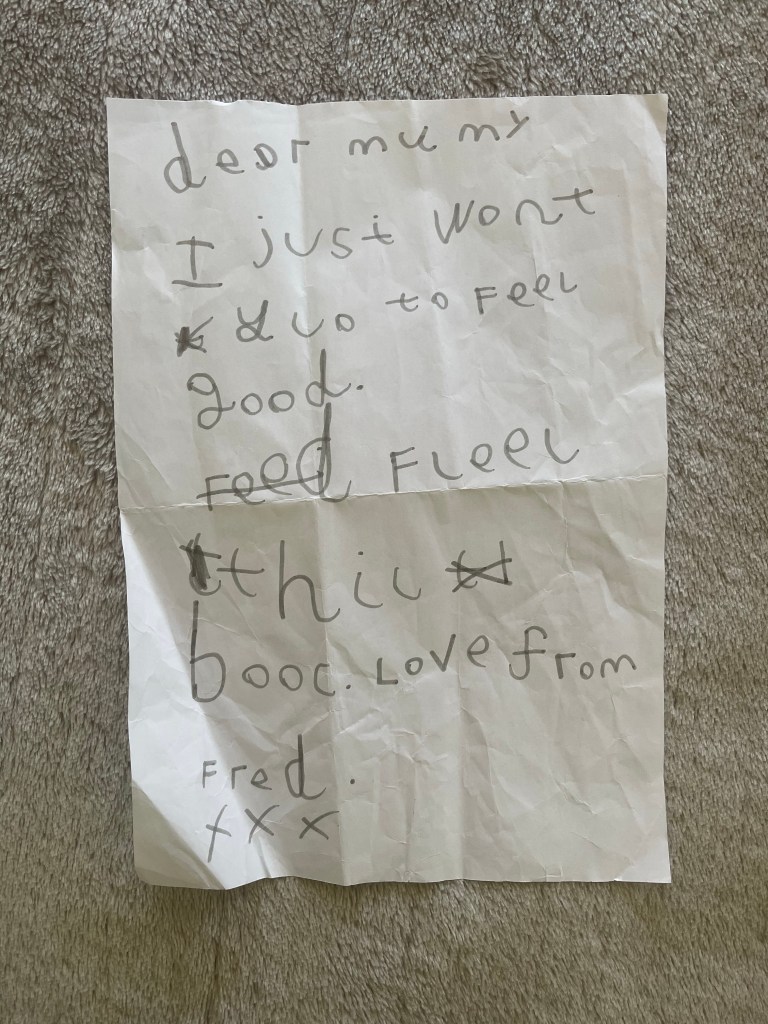 dear mumy
I just wont
yuo to FeeL
good.
Feed FLeeL
thic
booc. Love from
Fred.
xxx